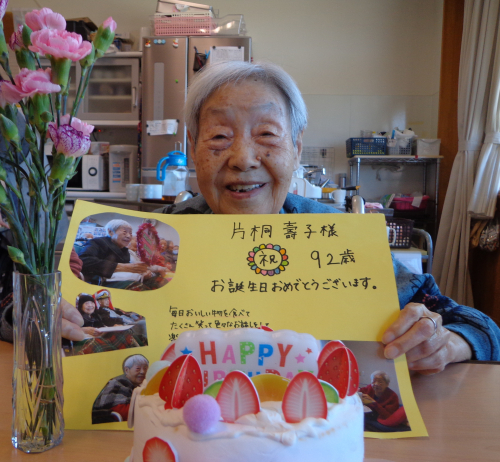 片桐 壽子様
祝 92歳
お誕生日おめでとうございます。
毎日おいしい物を食べて
たくさん笑って
HAPPY